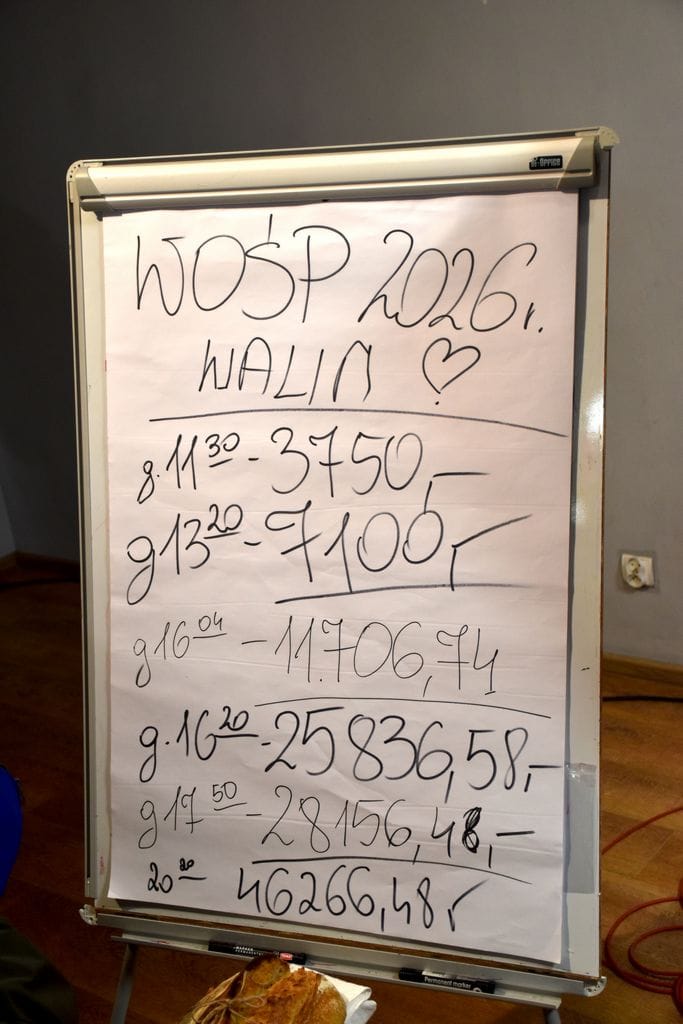 OFFICE
WOŚP 2026r.
WALIM ♡
g.11³⁰ - 3750,-
g13²⁰ - 7100,-
g16⁰⁴ - 11.706,74
g.16²⁰ - 25836,58,-
g17⁵⁰ - 28156,48,-
20²⁰ 46266,48,-
Permanent marker